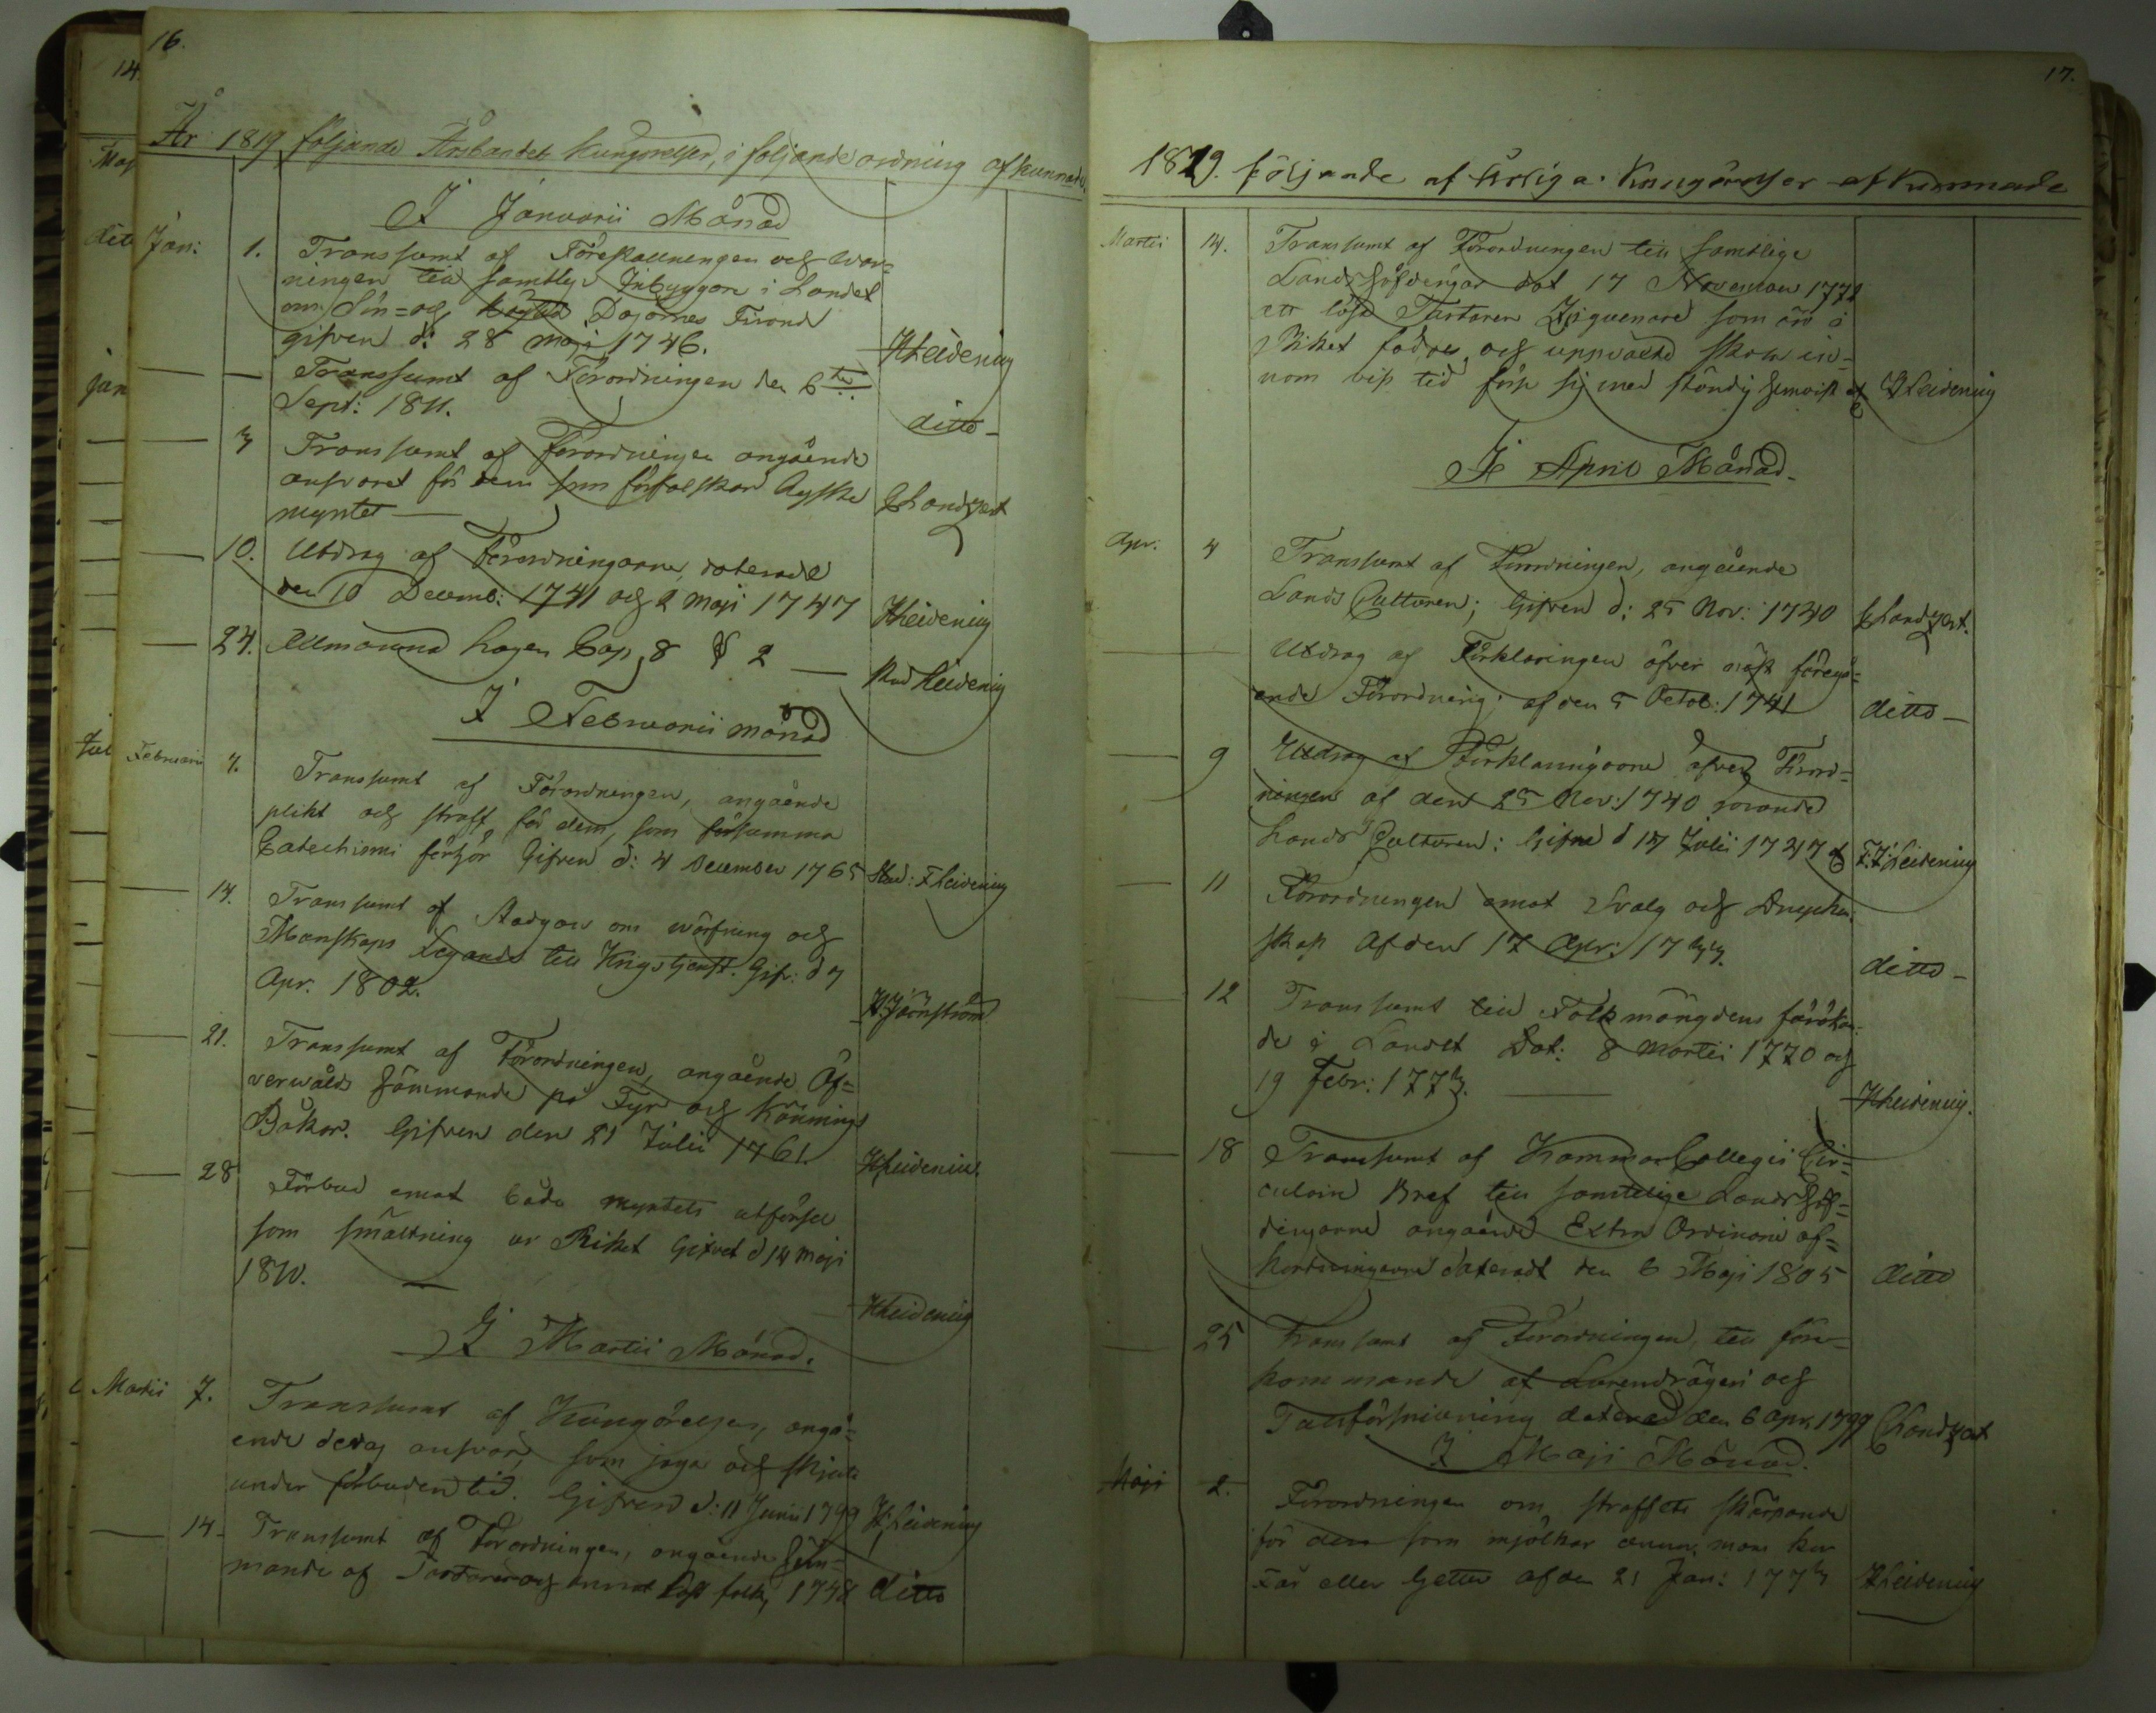 16.
År 1819 följande Årsbandets Kungörelser, i följande ordning afkunnade.
I Januarii Månad
Jan: 1. Transsumt af Förekallningen och War=
ningen till samtlige Inbyggare i Landet
om Sön= och Dagarnes Firand
gifven d: 28 Maji 1746. Heidenius
Transsumt af Förordningen den 6te
Sept: 1811. ditto
3 Transsumt af Förordningen angående
answaret för dem som förfalskar Ryska
myntet Landzert
10. Utdrag af Förordningarne, daterade
den 10 Decemb: 1741 och 2 Maji 1747 Heidenius
24. Allmänna Lagen Cap. 8 § 2 Heidenius
I Februarii månad
Februarii 7. Transsumt af Förordningen, angående
plikt och straff, för dem, som försumma
Catechismi förhör Gifven d: 4 December 1765 Stud: F Heidenius
14. Transsumt af Stadgan om wärfning och
Manskaps Legande till Krigstjenst. Gifv: d 7
Apr. 1802. Järnström
21. Transsumt af Förordningen, angående Öf=
verwålds hämmande på Fyr och Kännings
Båkar. Gifven den 21 Julii 1761. Heidenius
28 Förbud emot både myntets utförsel
som smältning ur Riket Gifvet d 14 Maji
1810. Heidenius
I Martii Månad.
Martii 7. Transsumt af Kungörelsen, angå=
ende deras answar, som jaga och skjuta
under förbuden tid. Gifven d: 11 Junii 1799 Heidenius
14. Transsumt af Förordningen, angående häm=
mande af Tartarer och annat Löst folk, 1748 ditto
17.
1819. följande af årliga Kungörelser afkunnade
Martii 14. Transsumt af Förordningen till samtlige
Landshöfdingar dat 17 November 1771
att löse Tartarer Ziguenare som äro i
Riket födde, och uppväxte skola in=
nom viss tid förse sig med ständig hemvist Heidenius
I April Månad.
Apr: 4 Transsumt af Förordningen, angående
Lands Culturen; Gifven d: 25 Nov: 1740 Landzert.
Utdrag af Förklaringen öfver näst föregå=
ende Förordning; af den 5 Octob: 1741 ditto
9 Utdrag af Förklaringarne öfver Förord=
ningen af den 25 Nov: 1740 rörande
Lands Culturen: Gifne d 14 Julii 1747 F. Heidenius
11 Förordningen emot Svalg och Dryckes
skap Af den 17 Apr: 1733. ditto
12 Transsumt till Folkmängdens förökan=
de i Landet Dat: 8 Martii 1770 och
19 Febr: 1773. Heidenius.
18 Transsumt af Kammar Collegii Cir=
culair Bref till samtelige Landshöf=
dingarne angående Extra Ordinarie af=
kortningarne dateradt den 6 Maji 1805 ditto
25 Transsumt af Förordningen, till före=
kommande af Lurendrägeri och
Tullförsnillning daterad den 6 Apr. 1799 Landzert
I Maji Månad.
Maji 2. Förordningen om straffets skärpande
för dem som mjölkar annan mans kor
Får eller Getter af den 21 Jan: 1773 Heidenius